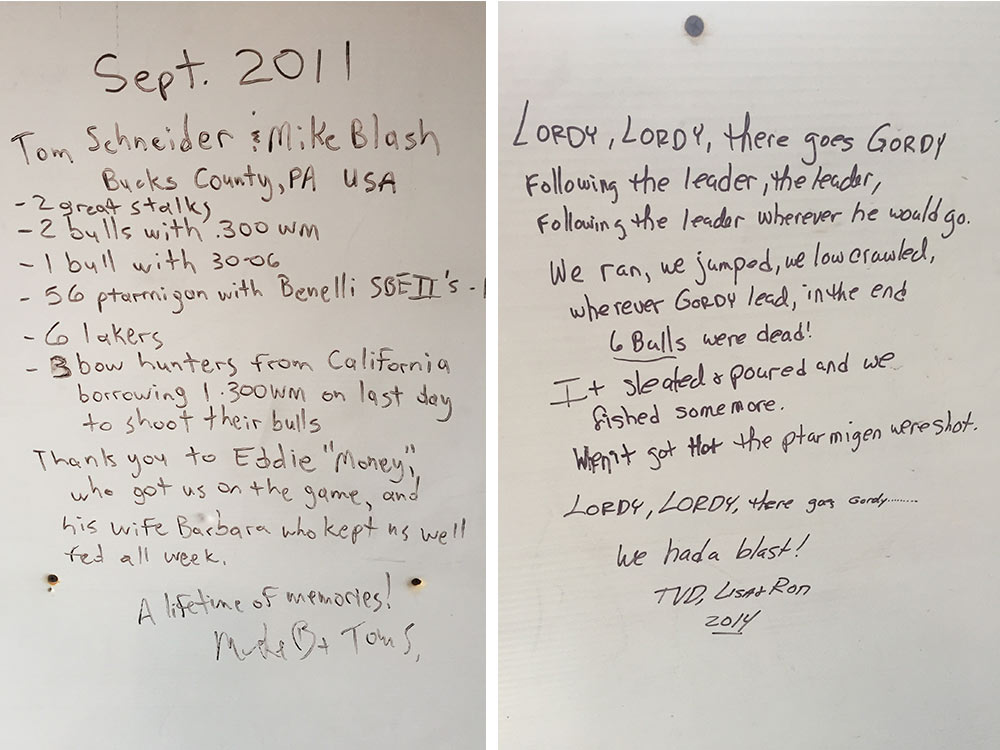 Sept. 2011
Tom Schneider & Mike Blash
Bucks County, PA USA
- 2 great stalks
- 2 bulls with .300 WM
- 1 bull with 30-06
- 56 ptarmigan with Benelli SBEII's -
- 6 lakers
- 3 bow hunters from California
borrowing 1 .300WM on last day
to shoot their bulls
Thank you to Eddie "Money",
who got us on the game, and
his wife Barbara who kept us well
fed all week.
A lifetime of memories!
Mike B + Tom S.
LORDY, LORDY, there goes GORDY
Following the leader, the leader,
Following the leader wherever he would go.
We ran, we jumped, we low crawled,
wherever GORDY lead, in the end
6 Bulls were dead!
It sleated & poured and we
fished some more.
When it got Hot the ptarmigen were shot.
LORDY, LORDY, there goes Gordy.........
We had a blast!
TVD, LISA + RON
2014